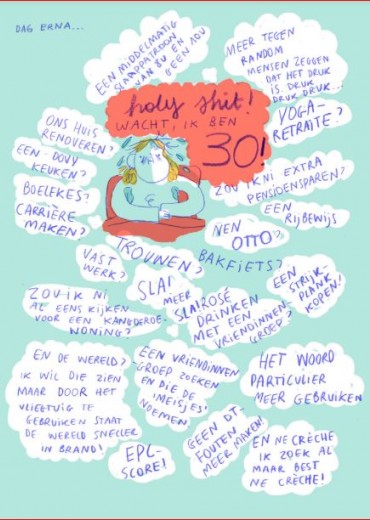 DAG ERNA...
EEN MIDDELMATIG
SLAAPPATROON
VAN 8U EN
GEEN 10U
MEER TEGEN
RANDOM
MENSEN ZEGGEN
DAT HET DRUK
IS. DRUK
DRUK DRUK...
holy shit!
WACHT, IK BEN
30!
YOGA-
RETRAITE?
ONS HUIS
RENOVEREN?
EEN DOVY
KEUKEN?
BOELEKES?
CARRIÈRE
MAKEN?
ZOU IK NI EXTRA
PENSIOENSPAREN?
EEN
RIJBEWIJS
NEN
OTTO?
TROUWEN?
BAKFIETS?
VAST
WERK?
SLA!
MEER
SLA!
ROSÉ
DRINKEN
MET EEN
VRIENDINNEN-
GROEP?
EEN
STRIJK-
PLANK
KOPEN!
ZOU IK NI
AL EENS KIJKEN
VOOR EEN KANGOEROE-
WONING?
EN DE WERELD?
IK WIL DIE ZIEN
MAAR DOOR HET
VLIEGTUIG TE
GEBRUIKEN STAAT
DE WERELD SNELLER
IN BRAND!
EEN VRIENDINNEN
GROEP ZOEKEN
EN DIE DE
'MEISJES'
NOEMEN
HET WOORD
PARTICULIER
MEER GEBRUIKEN
EPC-
SCORE!
GEEN DT-
FOUTEN
MEER MAKEN!
EN NE CRÈCHE
IK ZOEK AL
MAAR BEST
NE CRÈCHE!